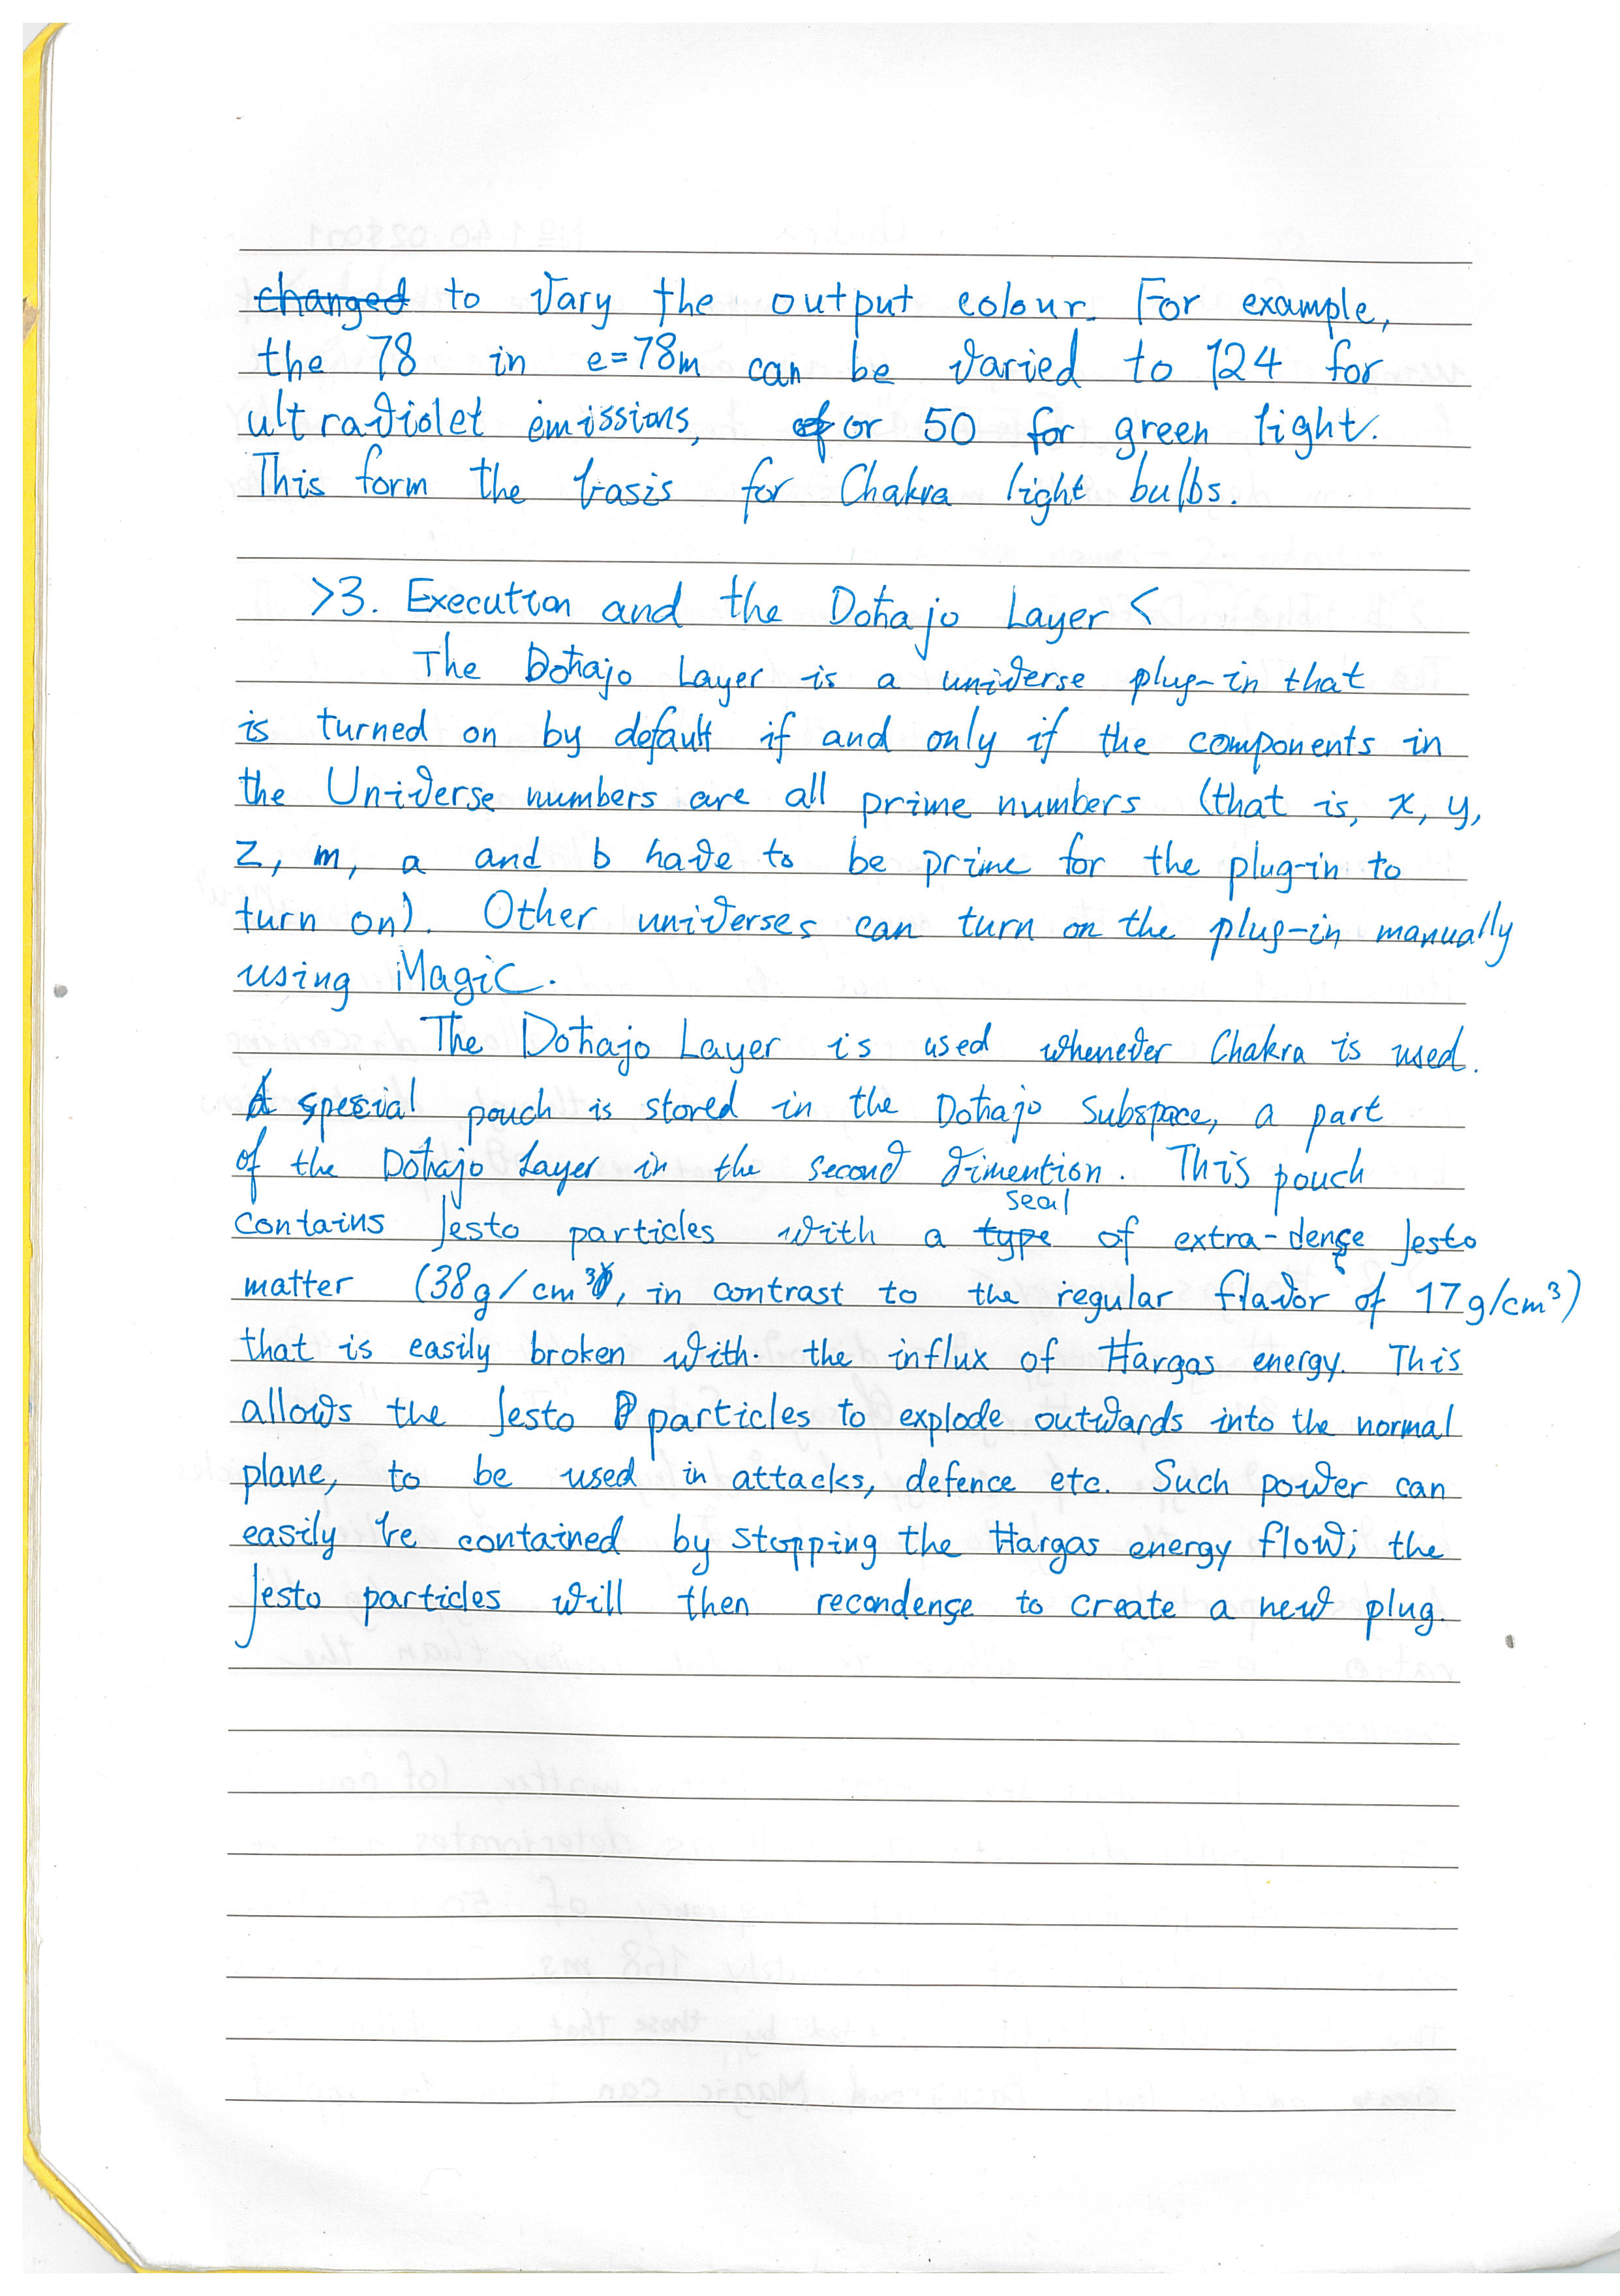 changed to vary the output colour. For example,
the 78 in e=78m can be varied to 124 for
ultraviolet emissions, or 50 for green light.
This form the basis for Chakra light bulbs.
>3. Execution and the Dohajo Layer <
The Dohajo Layer is a universe plug-in that
is turned on by default if and only if the components in
the Universe numbers are all prime numbers (that is, x, y,
z, m, a and b have to be prime for the plug-in to
turn on). Other universes can turn on the plug-in manually
using Magic.
The Dohajo Layer is used whenever Chakra is used.
A special pouch is stored in the Dohajo Subspace, a part
of the Dohajo Layer in the second dimention. This pouch
seal
contains Jesto particles with a type of extra-dense Jesto
matter (38g/cm³, in contrast to the regular flavor of 17g/cm³)
that is easily broken with the influx of Hargas energy. This
allows the Jesto particles to explode outwards into the normal
plane, to be used in attacks, defence etc. Such power can
easily be contained by stopping the Hargas energy flow; the
Jesto particles will then recondense to create a new plug.